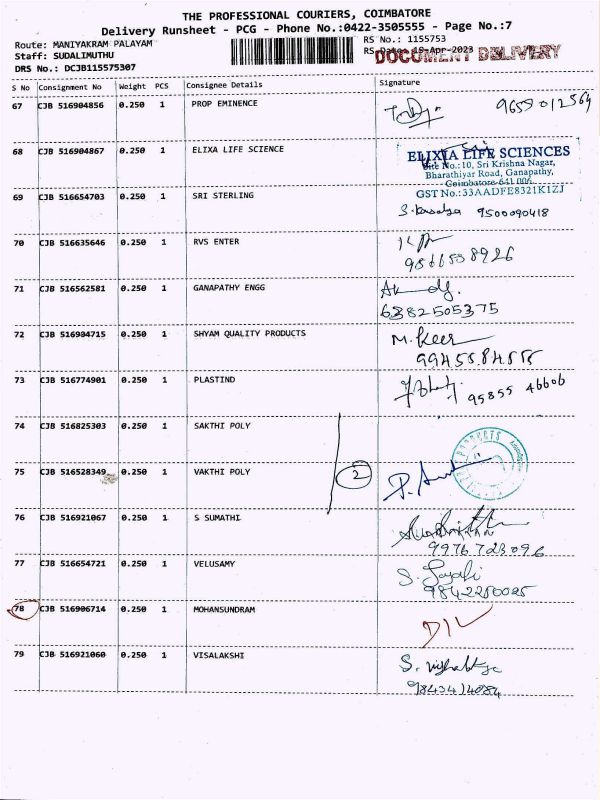 THE PROFESSIONAL COURIERS, COIMBATORE
Delivery Runsheet - PCG - Phone No.:0422-3505555 - Page No.:7
Route: MANIYAKRAM PALAYAM
RS No.: 1155753
Staff: SUDALIMUTHU
RS Date: 19-Apr-2023
DOCUMENT DELIVERY
DRS No.: DCJB115575307
S No Consignment No Weight PCS Consignee Details Signature
67 CJB 516904856 0.250 1 PROP EMINENCE
9659012564
68 CJB 516904867 0.250 1 ELIXA LIFE SCIENCE
ELIXIA LIFE SCIENCES
Site No.:10, Sri Krishna Nagar,
Bharathiyar Road, Ganapathy,
Coimbatore-641 006.
GST No.:33AADFE8321K1ZJ
69 CJB 516654703 0.250 1 SRI STERLING
9500090418
70 CJB 516635646 0.250 1 RVS ENTER
9866508926
71 CJB 516562581 0.250 1 GANAPATHY ENGG
6382505375
72 CJB 516904715 0.250 1 SHYAM QUALITY PRODUCTS
M. Keer
73 CJB 516774901 0.250 1 PLASTIND
95855 46606
74 CJB 516825303 0.250 1 SAKTHI POLY
75 CJB 516528349 0.250 1 VAKTHI POLY
2
PRODUCTS
76 CJB 516921067 0.250 1 S SUMATHI
9976723096
77 CJB 516654721 0.250 1 VELUSAMY
9842250025
78 CJB 516906714 0.250 1 MOHANSUNDRAM
D/L
79 CJB 516921060 0.250 1 VISALAKSHI
9843414084